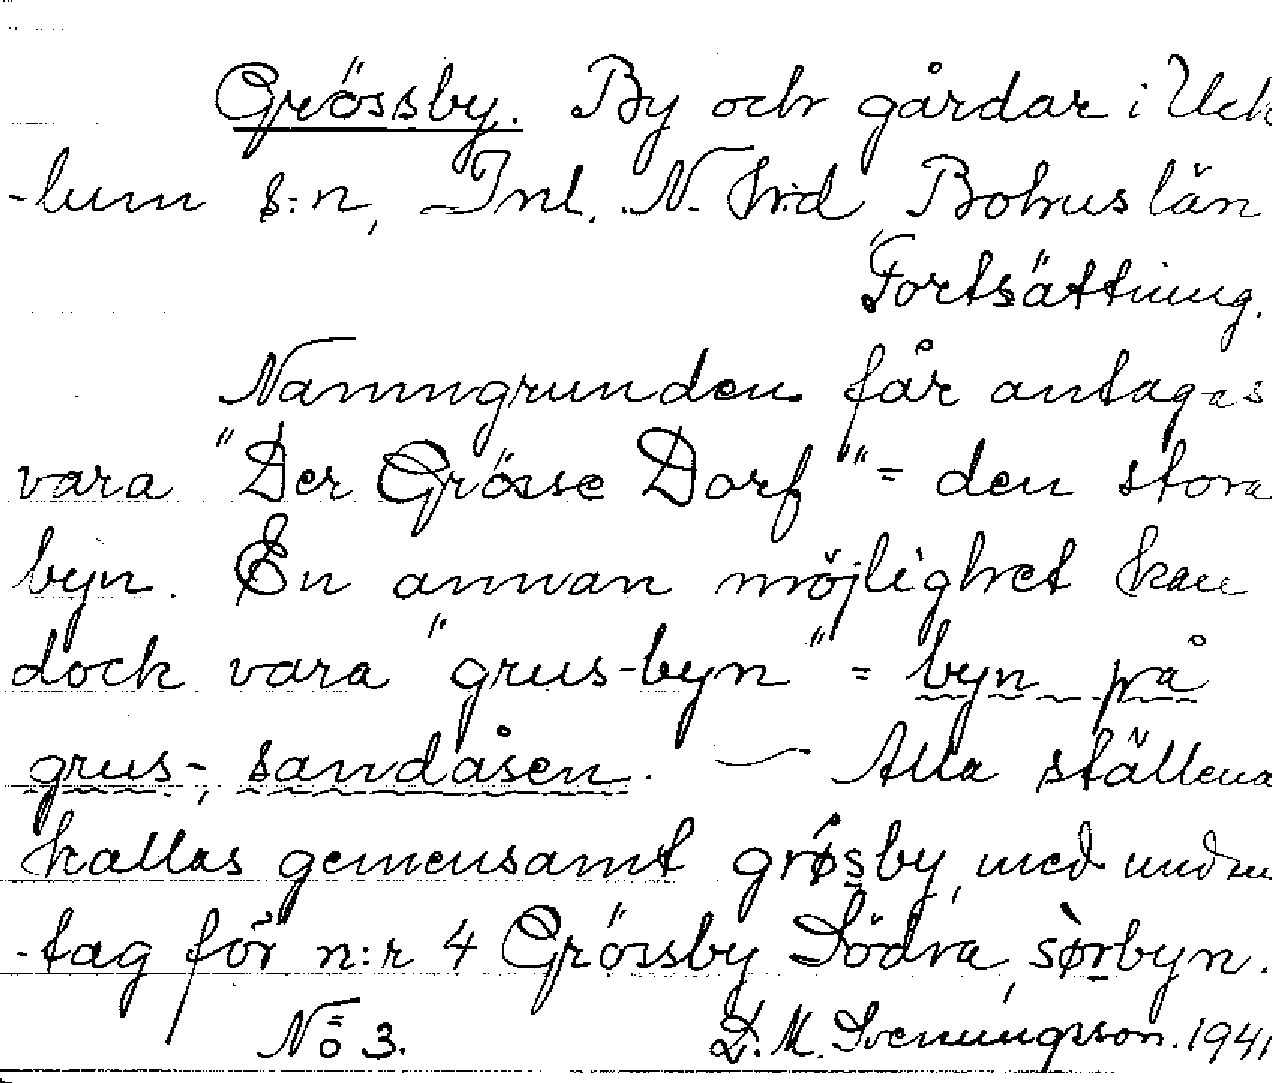 Grössby. By och gårdar i Uck
-lum s:n, Inl. N. Hrd Bohuslän
Fortsättning.
Namngrunden får antagas
vara "Der Grösse Dorf" = den stora
byn. En annan möjlighet kan
dock vara "grus-byn" = byn på
grus-, sandåsen. — Alla ställena
kallas gemensamt grøsby, med undan
-tag för n:r 4 Grössby Södra, sørbyn.
No 3. D. M. Svenningsson. 1941